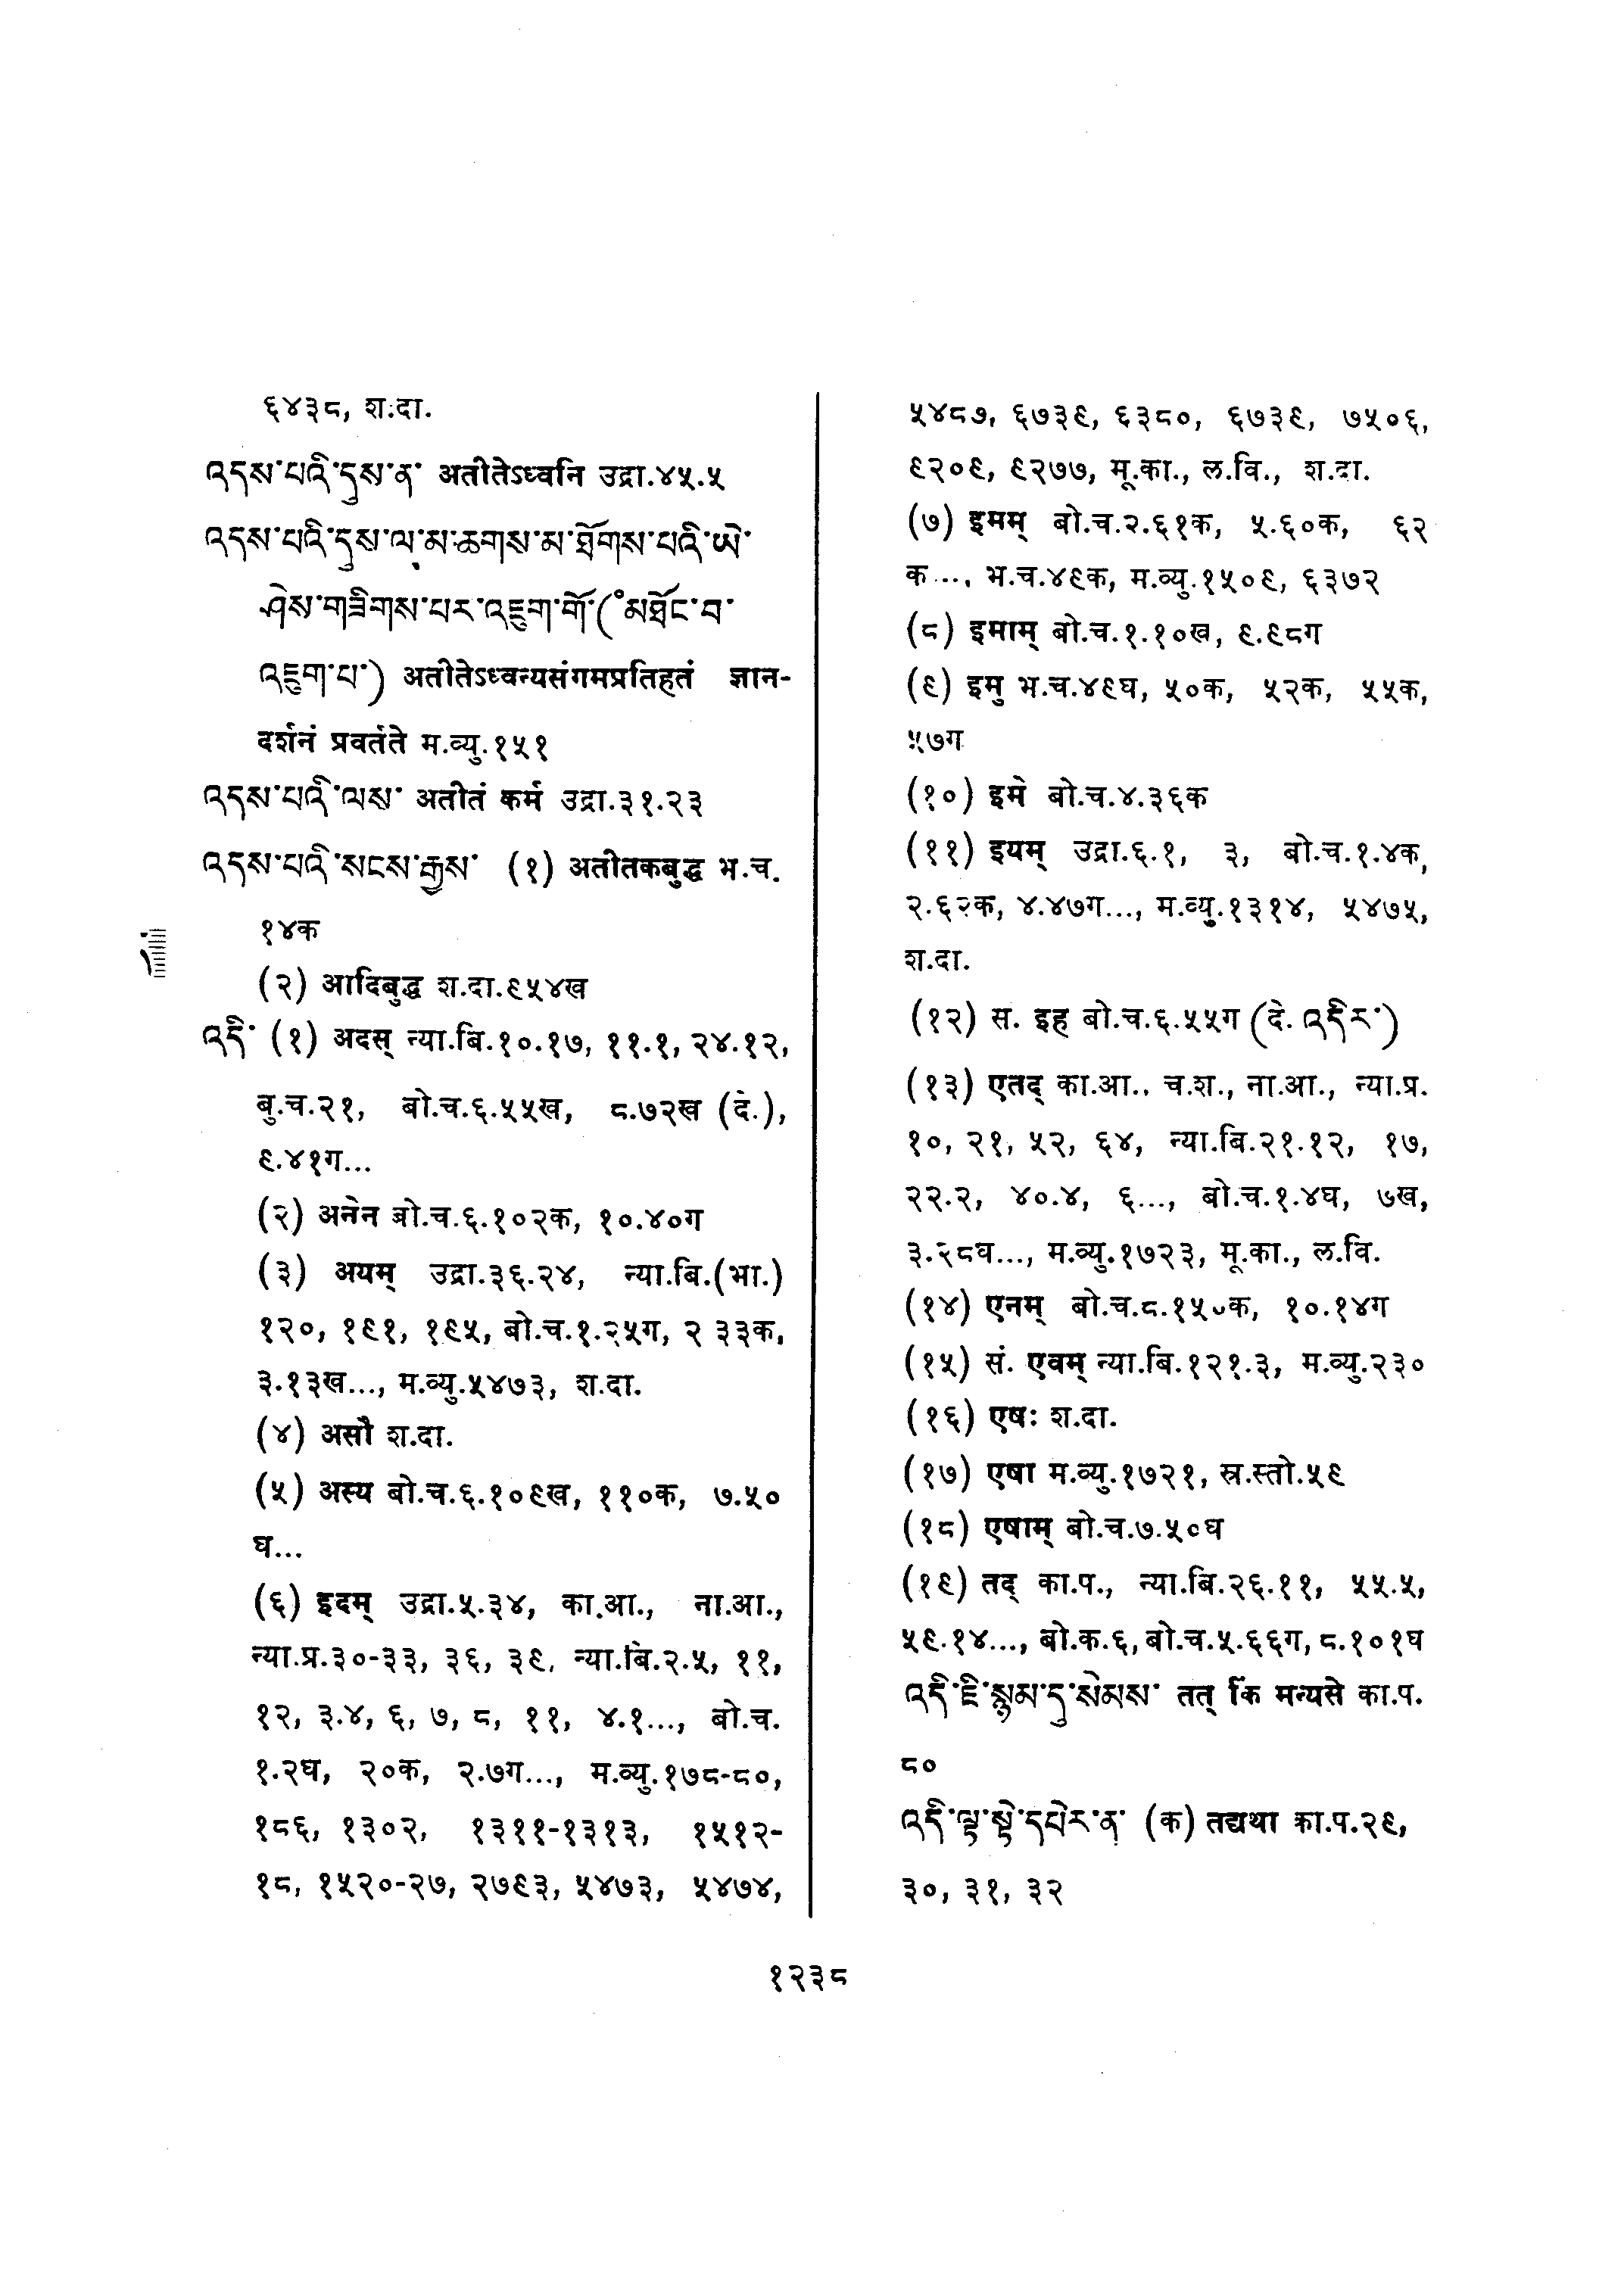 ६४३८, श.दा.
འདས་པའི་དུས་ན་ अतीतेऽध्वनि उद्रा.४५.५
འདས་པའི་དུས་ལ་མ་ཆགས་མ་ཐོགས་པའི་ཡེ་
ཤེས་གཟིགས་པར་འཇུག་གོ་(°མཐོང་བ་
འཇུག་པ་) अतीतेऽध्वन्यसंगमप्रतिहतं ज्ञान-
दर्शनं प्रवर्तते म.व्यु.१५१
འདས་པའི་ལས་ अतीतं कर्म उद्रा.३१.२३
འདས་པའི་སངས་རྒྱས་ (१) अतीतकबुद्ध भ.च.
१४क
(२) आदिबुद्ध श.दा.९५४ख
འདི་ (१) अदस् न्या.बि.१०.१७, ११.१, २४.१२,
बु.च.२१, बो.च.६.५५ख, ८.७२ख (दे.),
९.४१ग...
(२) अनेन बो.च.६.१०२क, १०.४०ग
(३) अयम् उद्रा.३६.२४, न्या.बि.(भा.)
१२०, १९१, १९५, बो.च.१.२५ग, २ ३३क,
३.१३ख..., म.व्यु.५४७३, श.दा.
(४) असौ श.दा.
(५) अस्य बो.च.६.१०९ख, ११०क, ७.५०
घ...
(६) इदम् उद्रा.५.३४, का.आ., ना.आ.,
न्या.प्र.३०-३३, ३६, ३९, न्या.बि.२.५, ११,
१२, ३.४, ६, ७, ८, ११, ४.१..., बो.च.
१.२घ, २०क, २.७ग..., म.व्यु.१७८-८०,
१८६, १३०२, १३११-१३१३, १५१२-
१८, १५२०-२७, २७९३, ५४७३, ५४७४,
५४८७, ६७३९, ६३८०, ६७३९, ७५०६,
९२०९, ९२७७, मू.का., ल.वि., श.दा.
(७) इमम् बो.च.२.६१क, ५.६०क, ६२
क..., भ.च.४९क, म.व्यु.१५०९, ६३७२
(८) इमाम् बो.च.१.१०ख, ९.९८ग
(९) इमु भ.च.४९घ, ५०क, ५२क, ५५क,
५७ग
(१०) इमे बो.च.४.३६क
(११) इयम् उद्रा.६.१, ३, बो.च.१.४क,
२.६२क, ४.४७ग..., म.व्यु.१३१४, ५४७५,
श.दा.
(१२) स. इह बो.च.६.५५ग (दे. འདིར་)
(१३) एतद् का.आ., च.श., ना.आ., न्या.प्र.
१०, २१, ५२, ६४, न्या.बि.२१.१२, १७,
२२.२, ४०.४, ६..., बो.च.१.४घ, ७ख,
३.२८घ..., म.व्यु.१७२३, मू.का., ल.वि.
(१४) एनम् बो.च.८.१५०क, १०.१४ग
(१५) सं. एवम् न्या.बि.१२१.३, म.व्यु.२३०
(१६) एषः श.दा.
(१७) एषा म.व्यु.१७२१, स्र.स्तो.५९
(१८) एषाम् बो.च.७.५०घ
(१९) तद् का.प., न्या.बि.२६.११, ५५.५,
५९.१४..., बो.क.६, बो.च.५.६६ग, ८.१०१घ
འདི་ཇི་སྙམ་དུ་སེམས་ तत् किं मन्यसे का.प.
८०
འདི་ལྟ་སྟེ་དཔེར་ན་ (क) तद्यथा का.प.२९,
३०, ३१, ३२
१२३८